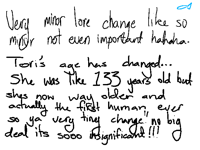 Very minor lore change like so
minor not even important hahaha.
Tori's age has changed...
She was like 133 years old but
shes now way older and
actually the first human ever
so ya very tiny change no big
deal its sooo insignificant!!!